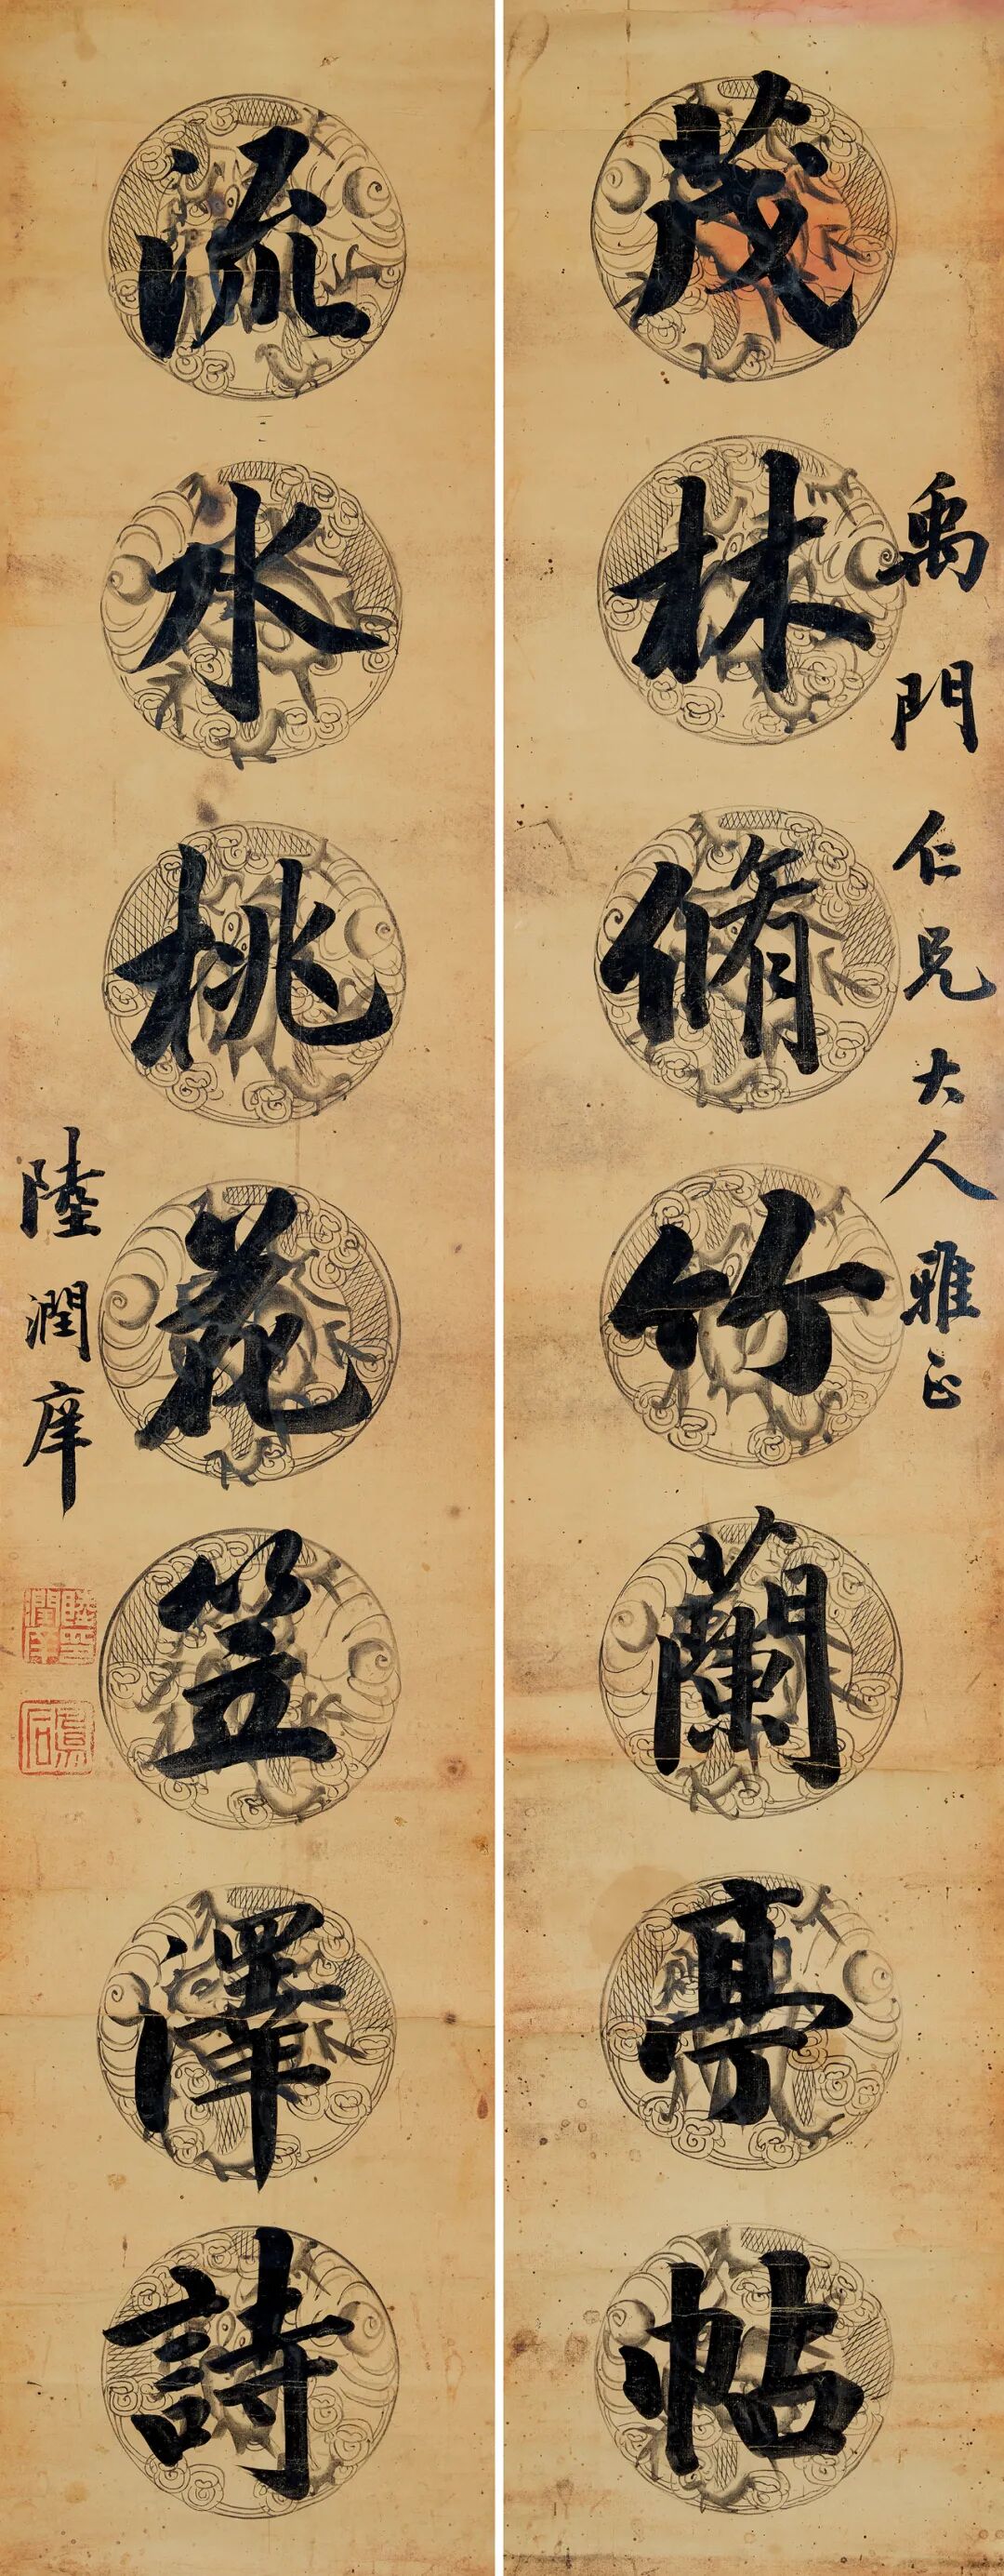 禹門仁兄大人雅正
茂林脩竹蘭亭帖
流水桃花笠澤詩
陸潤庠
陸潤庠印
鳳石